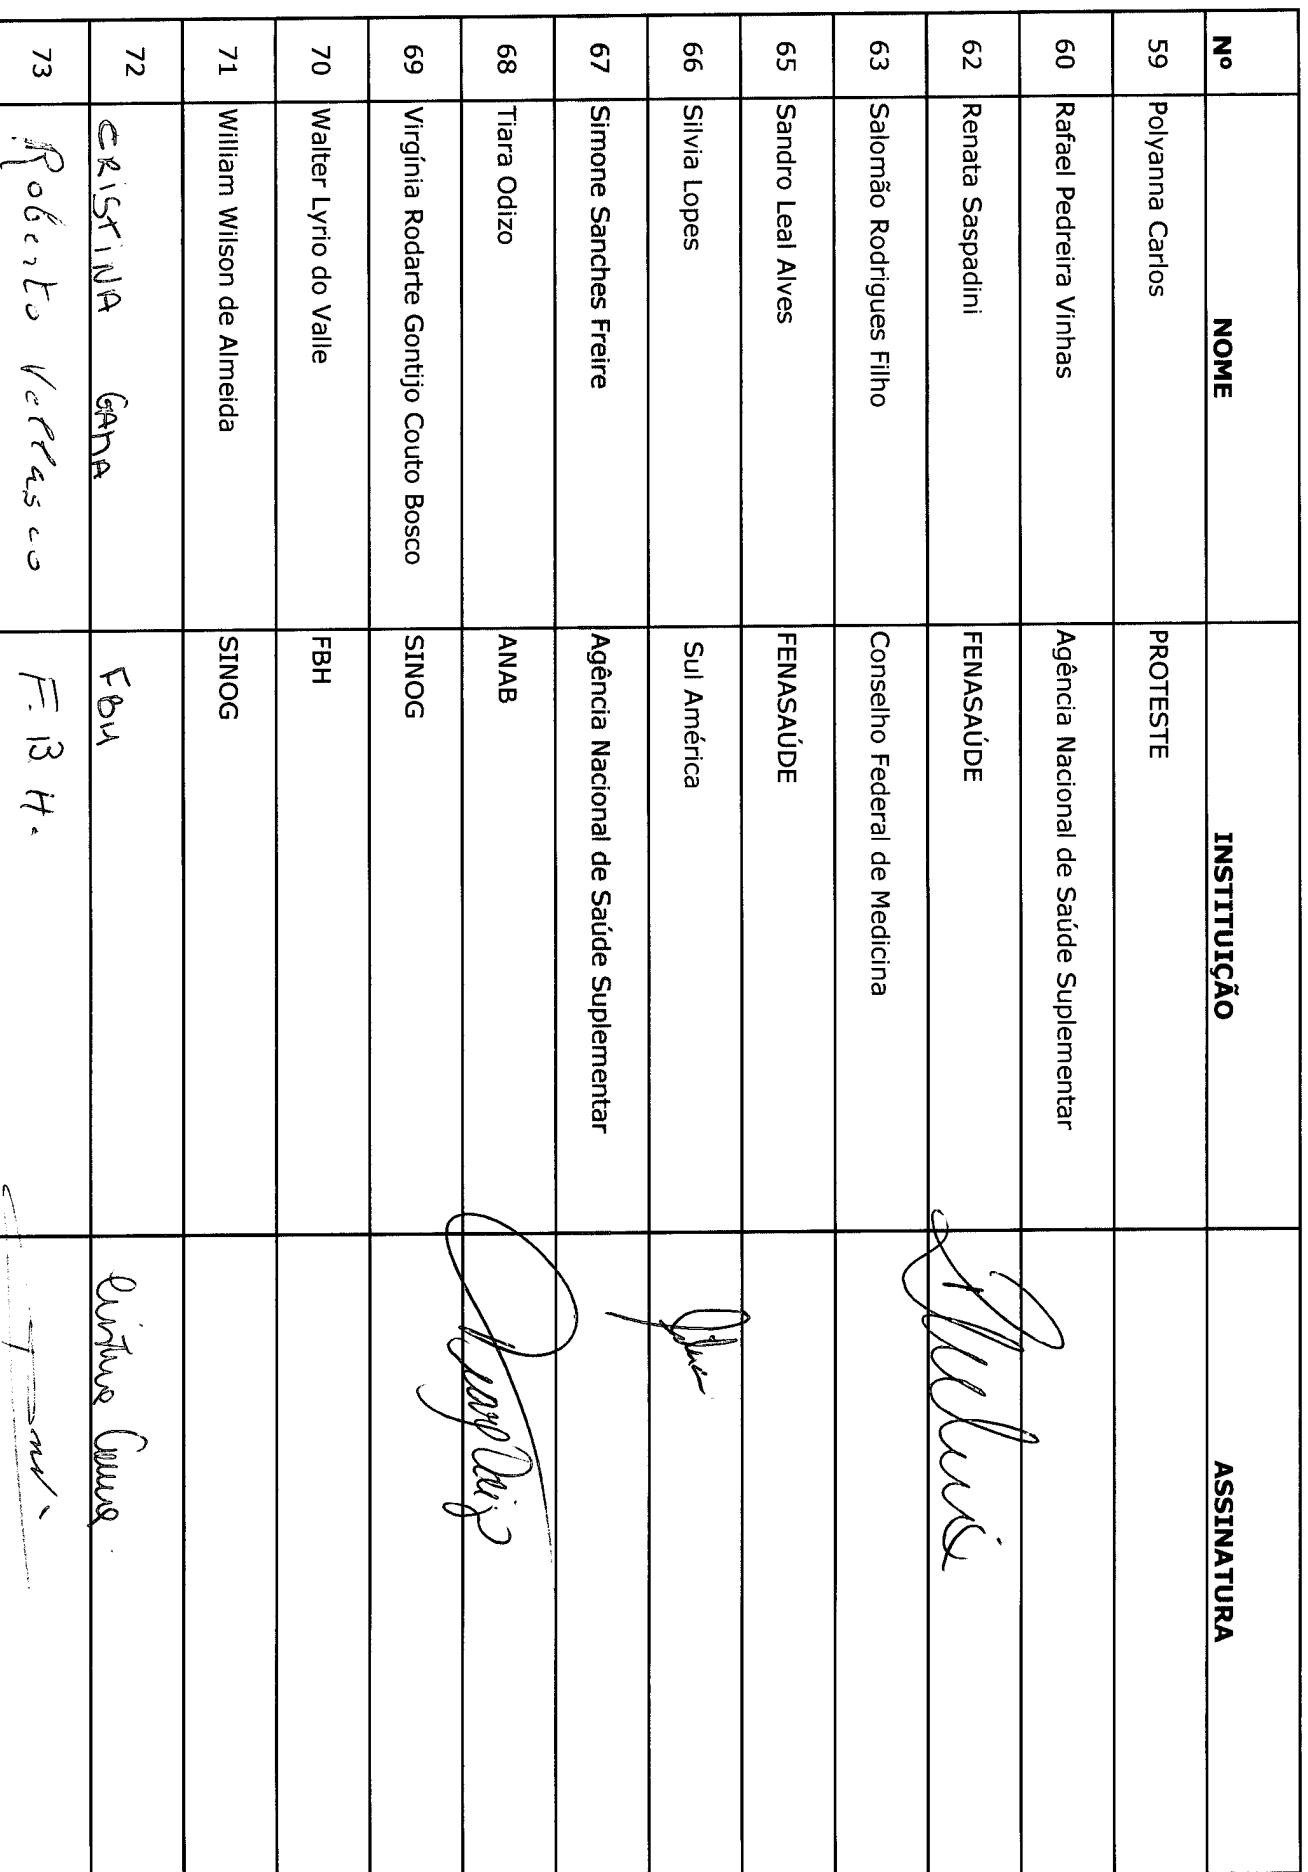 Nº NOME INSTITUIÇÃO ASSINATURA
59 Polyanna Carlos PROTESTE
60 Rafael Pedreira Vinhas Agência Nacional de Saúde Suplementar
62 Renata Saspadini FENASAÚDE
63 Salomão Rodrigues Filho Conselho Federal de Medicina
65 Sandro Leal Alves FENASAÚDE
66 Silvia Lopes Sul América
67 Simone Sanches Freire Agência Nacional de Saúde Suplementar
68 Tiara Odizo ANAB
69 Virgínia Rodarte Gontijo Couto Bosco SINOG
70 Walter Lyrio do Valle FBH
71 William Wilson de Almeida SINOG
72 CRISTINA GAMA FBH Cristina Gama
73 Roberto Vellasco F.B.H.